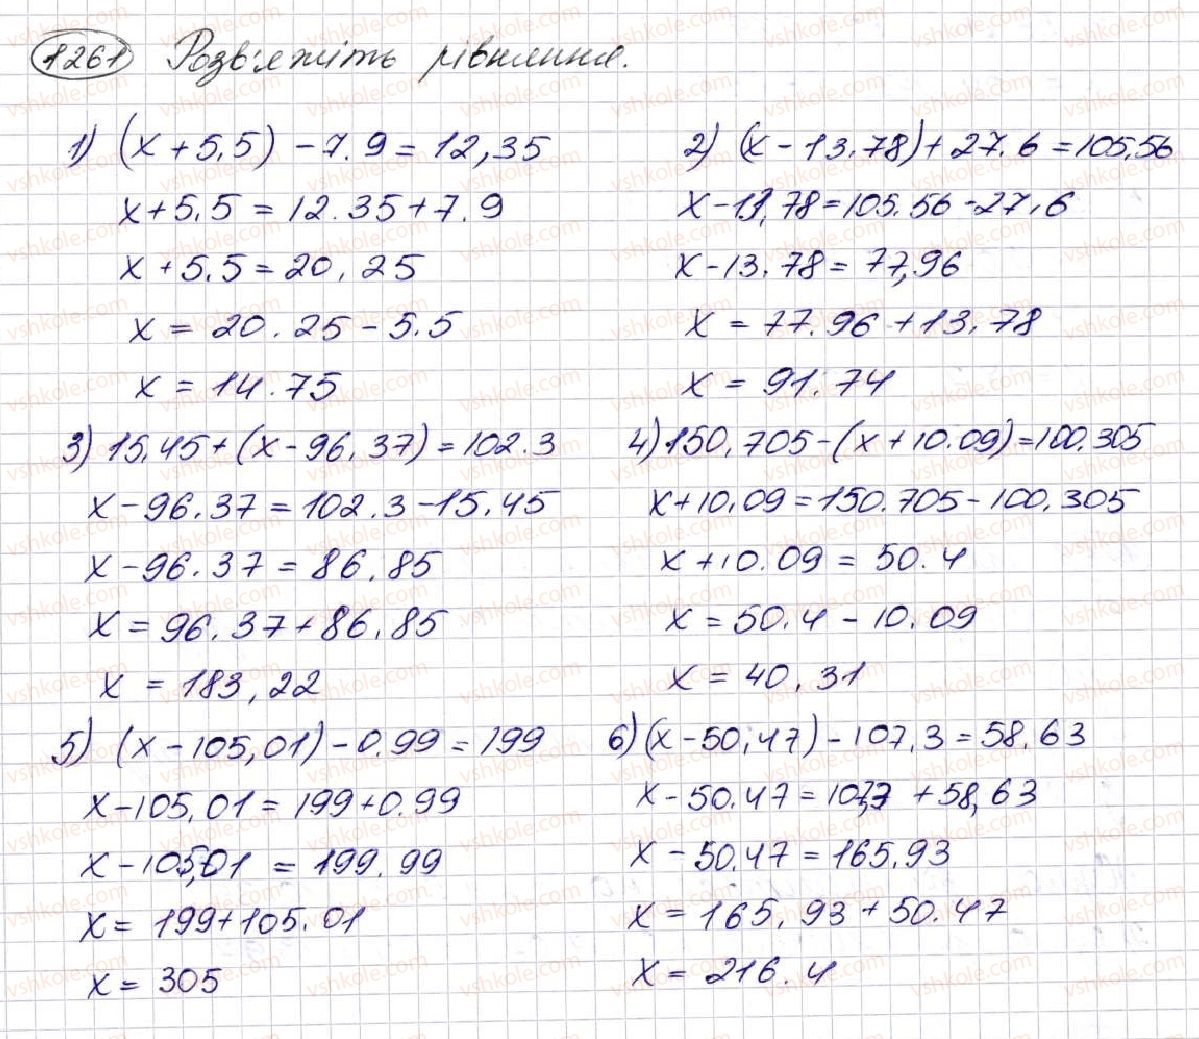 1261 Розв'яжіть рівняння.
1) (x + 5,5) - 7.9 = 12,35
x + 5,5 = 12.35 + 7.9
x + 5,5 = 20,25
x = 20.25 - 5.5
x = 14.75
2) (x - 13,78) + 27.6 = 105,56
x - 13,78 = 105.56 - 27,6
x - 13.78 = 77,96
x = 77.96 + 13.78
x = 91.74
3) 15,45 + (x - 96,37) = 102.3
x - 96.37 = 102.3 - 15.45
x - 96.37 = 86.85
x = 96.37 + 86.85
x = 183,22
4) 150,705 - (x + 10.09) = 100.305
x + 10,09 = 150.705 - 100,305
x + 10.09 = 50.4
x = 50.4 - 10.09
x = 40,31
5) (x - 105,01) - 0.99 = 199
x - 105,01 = 199 + 0.99
x - 105,01 = 199.99
x = 199 + 105.01
x = 305
6) (x - 50,47) - 107,3 = 58.63
x - 50.47 = 107,3 + 58,63
x - 50.47 = 165.93
x = 165,93 + 50.47
x = 216.4